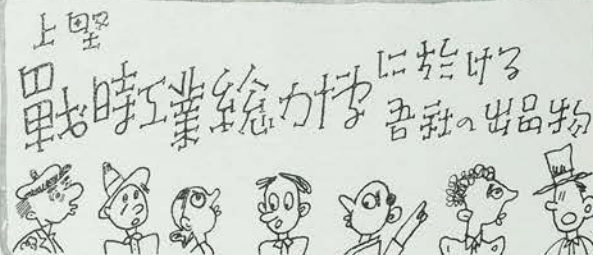 上野
戰時工業総力博に於ける
吾社の出品物